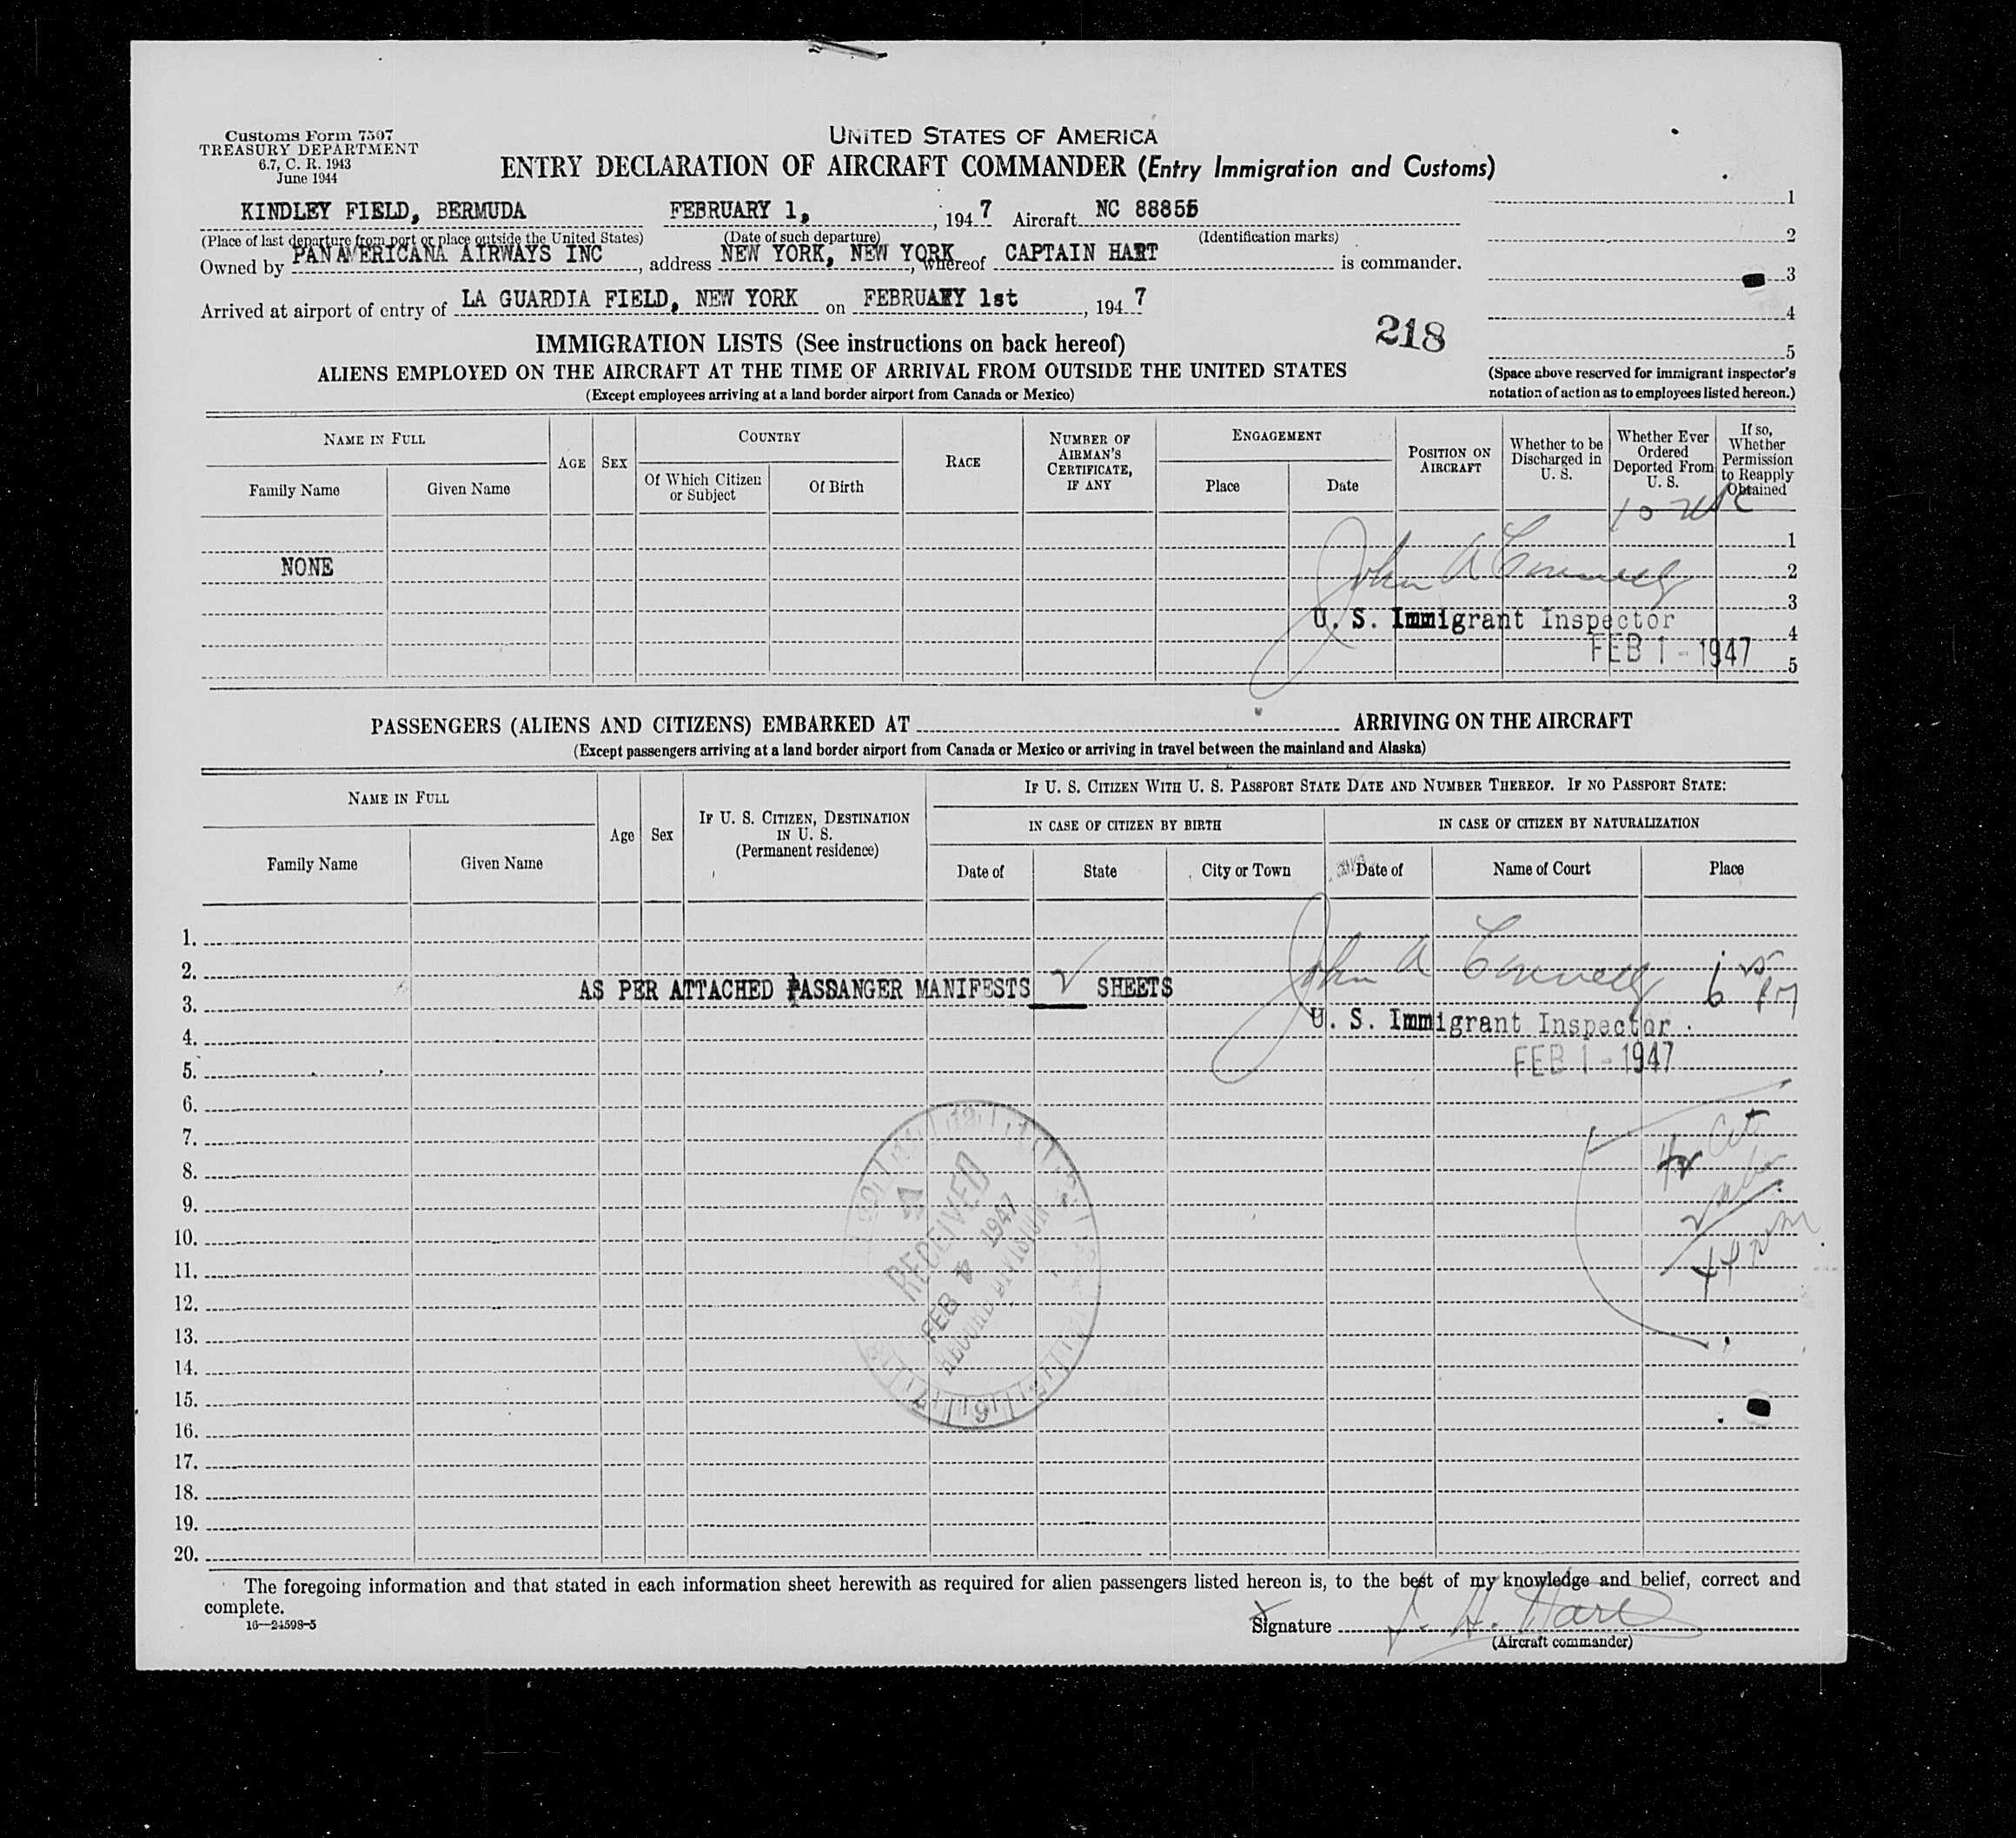 Customs Form 7507
TREASURY DEPARTMENT
6.7, C. R. 1943
June 1944
UNITED STATES OF AMERICA
ENTRY DECLARATION OF AIRCRAFT COMMANDER (Entry Immigration and Customs)
KINDLEY FIELD, BERMUDA FEBRUARY 1, , 1947 Aircraft NC 88855
(Place of last departure from port or place outside the United States) (Date of such departure) (Identification marks)
Owned by PAN AMERICANA AIRWAYS INC , address NEW YORK, NEW YORK , whereof CAPTAIN HART is commander.
Arrived at airport of entry of LA GUARDIA FIELD, NEW YORK on FEBRUARY 1st , 1947
1
2
3
4
5
(Space above reserved for immigrant inspector's
notation of action as to employees listed hereon.)
218
IMMIGRATION LISTS (See instructions on back hereof)
ALIENS EMPLOYED ON THE AIRCRAFT AT THE TIME OF ARRIVAL FROM OUTSIDE THE UNITED STATES
(Except employees arriving at a land border airport from Canada or Mexico)
NAME IN FULL
Family Name
Given Name
AGE
SEX
COUNTRY
Of Which Citizen or Subject
Of Birth
RACE
NUMBER OF AIRMAN'S CERTIFICATE, IF ANY
ENGAGEMENT
Place
Date
POSITION ON AIRCRAFT
Whether to be Discharged in U. S.
Whether Ever Ordered Deported From U. S.
If so, Whether Permission to Reapply Obtained
1
NONE 2
John A Connelly
3
U. S. Immigrant Inspector
4
FEB 1 - 1947
5
PASSENGERS (ALIENS AND CITIZENS) EMBARKED AT ARRIVING ON THE AIRCRAFT
(Except passengers arriving at a land border airport from Canada or Mexico or arriving in travel between the mainland and Alaska)
NAME IN FULL
Family Name
Given Name
Age
Sex
IF U. S. CITIZEN, DESTINATION IN U. S.
(Permanent residence)
IF U. S. CITIZEN WITH U. S. PASSPORT STATE DATE AND NUMBER THEREOF. IF NO PASSPORT STATE:
IN CASE OF CITIZEN BY BIRTH
Date of
State
City or Town
IN CASE OF CITIZEN BY NATURALIZATION
Date of
Name of Court
Place
1.
2.
AS PER ATTACHED PASSANGER MANIFESTS 2 SHEETS
John A Connelly 6 15 PM
3.
U. S. Immigrant Inspector
4.
5.
FEB 1 - 1947
6.
7.
8.
42 Cit
9.
2
10.
11.
44
12.
13.
14.
15.
16.
17.
18.
19.
20.
RECEIVED
FEB 1947
RECORD DIVISION
The foregoing information and that stated in each information sheet herewith as required for alien passengers listed hereon is, to the best of my knowledge and belief, correct and
complete.
16—24598-5
Signature
(Aircraft commander)